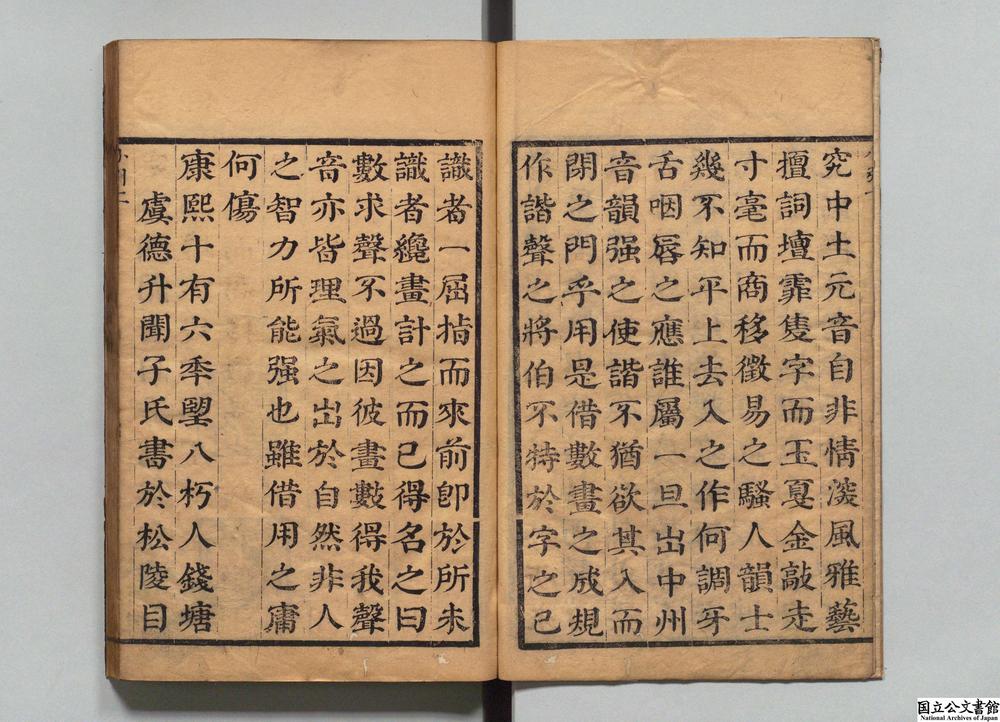 究中土元音自非情深風雅藝
擅詞壇霏隻字而玉戛金敲走
寸毫而商移徵易之騷人韻士
幾不知平上去入之作何調牙
舌咽唇之應誰屬一旦出中州
音韻强之使諧不猶欲其入而
閉之門乎用是借數畫之成規
作諧聲之將伯不特於字之已
識者一屈指而來前卽於所未
識者纔畫計之而已得名之曰
數求聲不過因彼畫數得我聲
音亦皆理氣之出於自然非人
之智力所能强也雖借用之庸
何傷
康熙十有六年朢八朽人錢塘
虞德升聞子氏書於松陵目
国立公文書館
National Archives of Japan